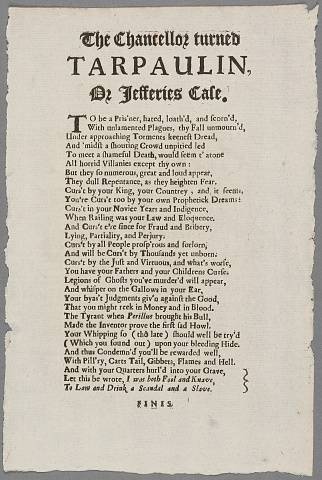 The Chancellor turned
TARPAULIN,
Or Jefferies Case.
TO be a Pris'ner, hated, loath'd, and scorn'd,
With unlamented Plagues, thy Fall unmourn'd,
Under approaching Torments keenest Dread,
And 'midst a shouting Crowd unpitied led
To meet a shameful Death, would seem t' atone
All horrid Villanies except thy own:
But they so numerous, great and loud appear,
They dull Repentance, as they heighten Fear.
Curs't by your King, your Countrey, and it seems,
You're Curs't too by your own Prophetick Dreams:
Curs't in your Novice Years and Indigence,
When Railing was your Law and Eloquence.
And Curs't e're since for Fraud and Bribery,
Lying, Partiality, and Perjury.
Curs't by all People prosp'rous and forlorn,
And will be Curs't by Thousands yet unborn.
Curs't by the Just and Virtuous, and what's worse,
You have your Fathers and your Childrens Curse.
Legions of Ghosts you've murder'd will appear,
And whisper on the Gallows in your Ear,
Your byas't Judgments giv'n against the Good,
That you might reek in Money and in Blood.
The Tyrant when Perillus brought his Bull,
Made the Inventor prove the first sad Howl.
Your Whipping so (thô late) should well be try'd
(Which you found out) upon your bleeding Hide.
And thus Condemn'd you'll be rewarded well,
With Pill'ry, Carts Tail, Gibbets, Flames and Hell.
And with your Quarters hurl'd into your Grave,
Let this be wrote, I was both Fool and Knave,
To Law and Drink a Scandal and a Slave.
FINIS.